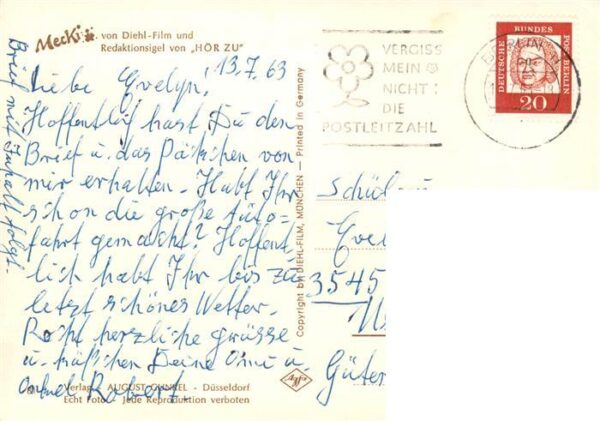 Mecki von Diehl-Film und
Redaktionsigel von „HÖR ZU"
13.7.63
Liebe Evelyn!
Hoffentlich hast Du den
Brief u. das Päkchen von
mir erhalten. Habt Ihr
schon die große Auto-
fahrt gemacht? Hoffent
lich habt Ihr bis zu
letzt schönes Wetter.
Recht herzliche grüsse
u. küßchen Deine Omi u.
Onkel Robert.
Brief mit Inhalt folgt.
Verlag AUGUST GUNKEL - Düsseldorf
Echt Foto - Jede Reproduktion verboten
Copyright by DIEHL-FILM, MÜNCHEN — Printed in Germany
Agfa
VERGISS
MEIN
NICHT
DIE
POSTLEITZAHL
BERLIN
DEUTSCHE BUNDESPOST BERLIN
20
Schül
Eve
3545
Us
Güter